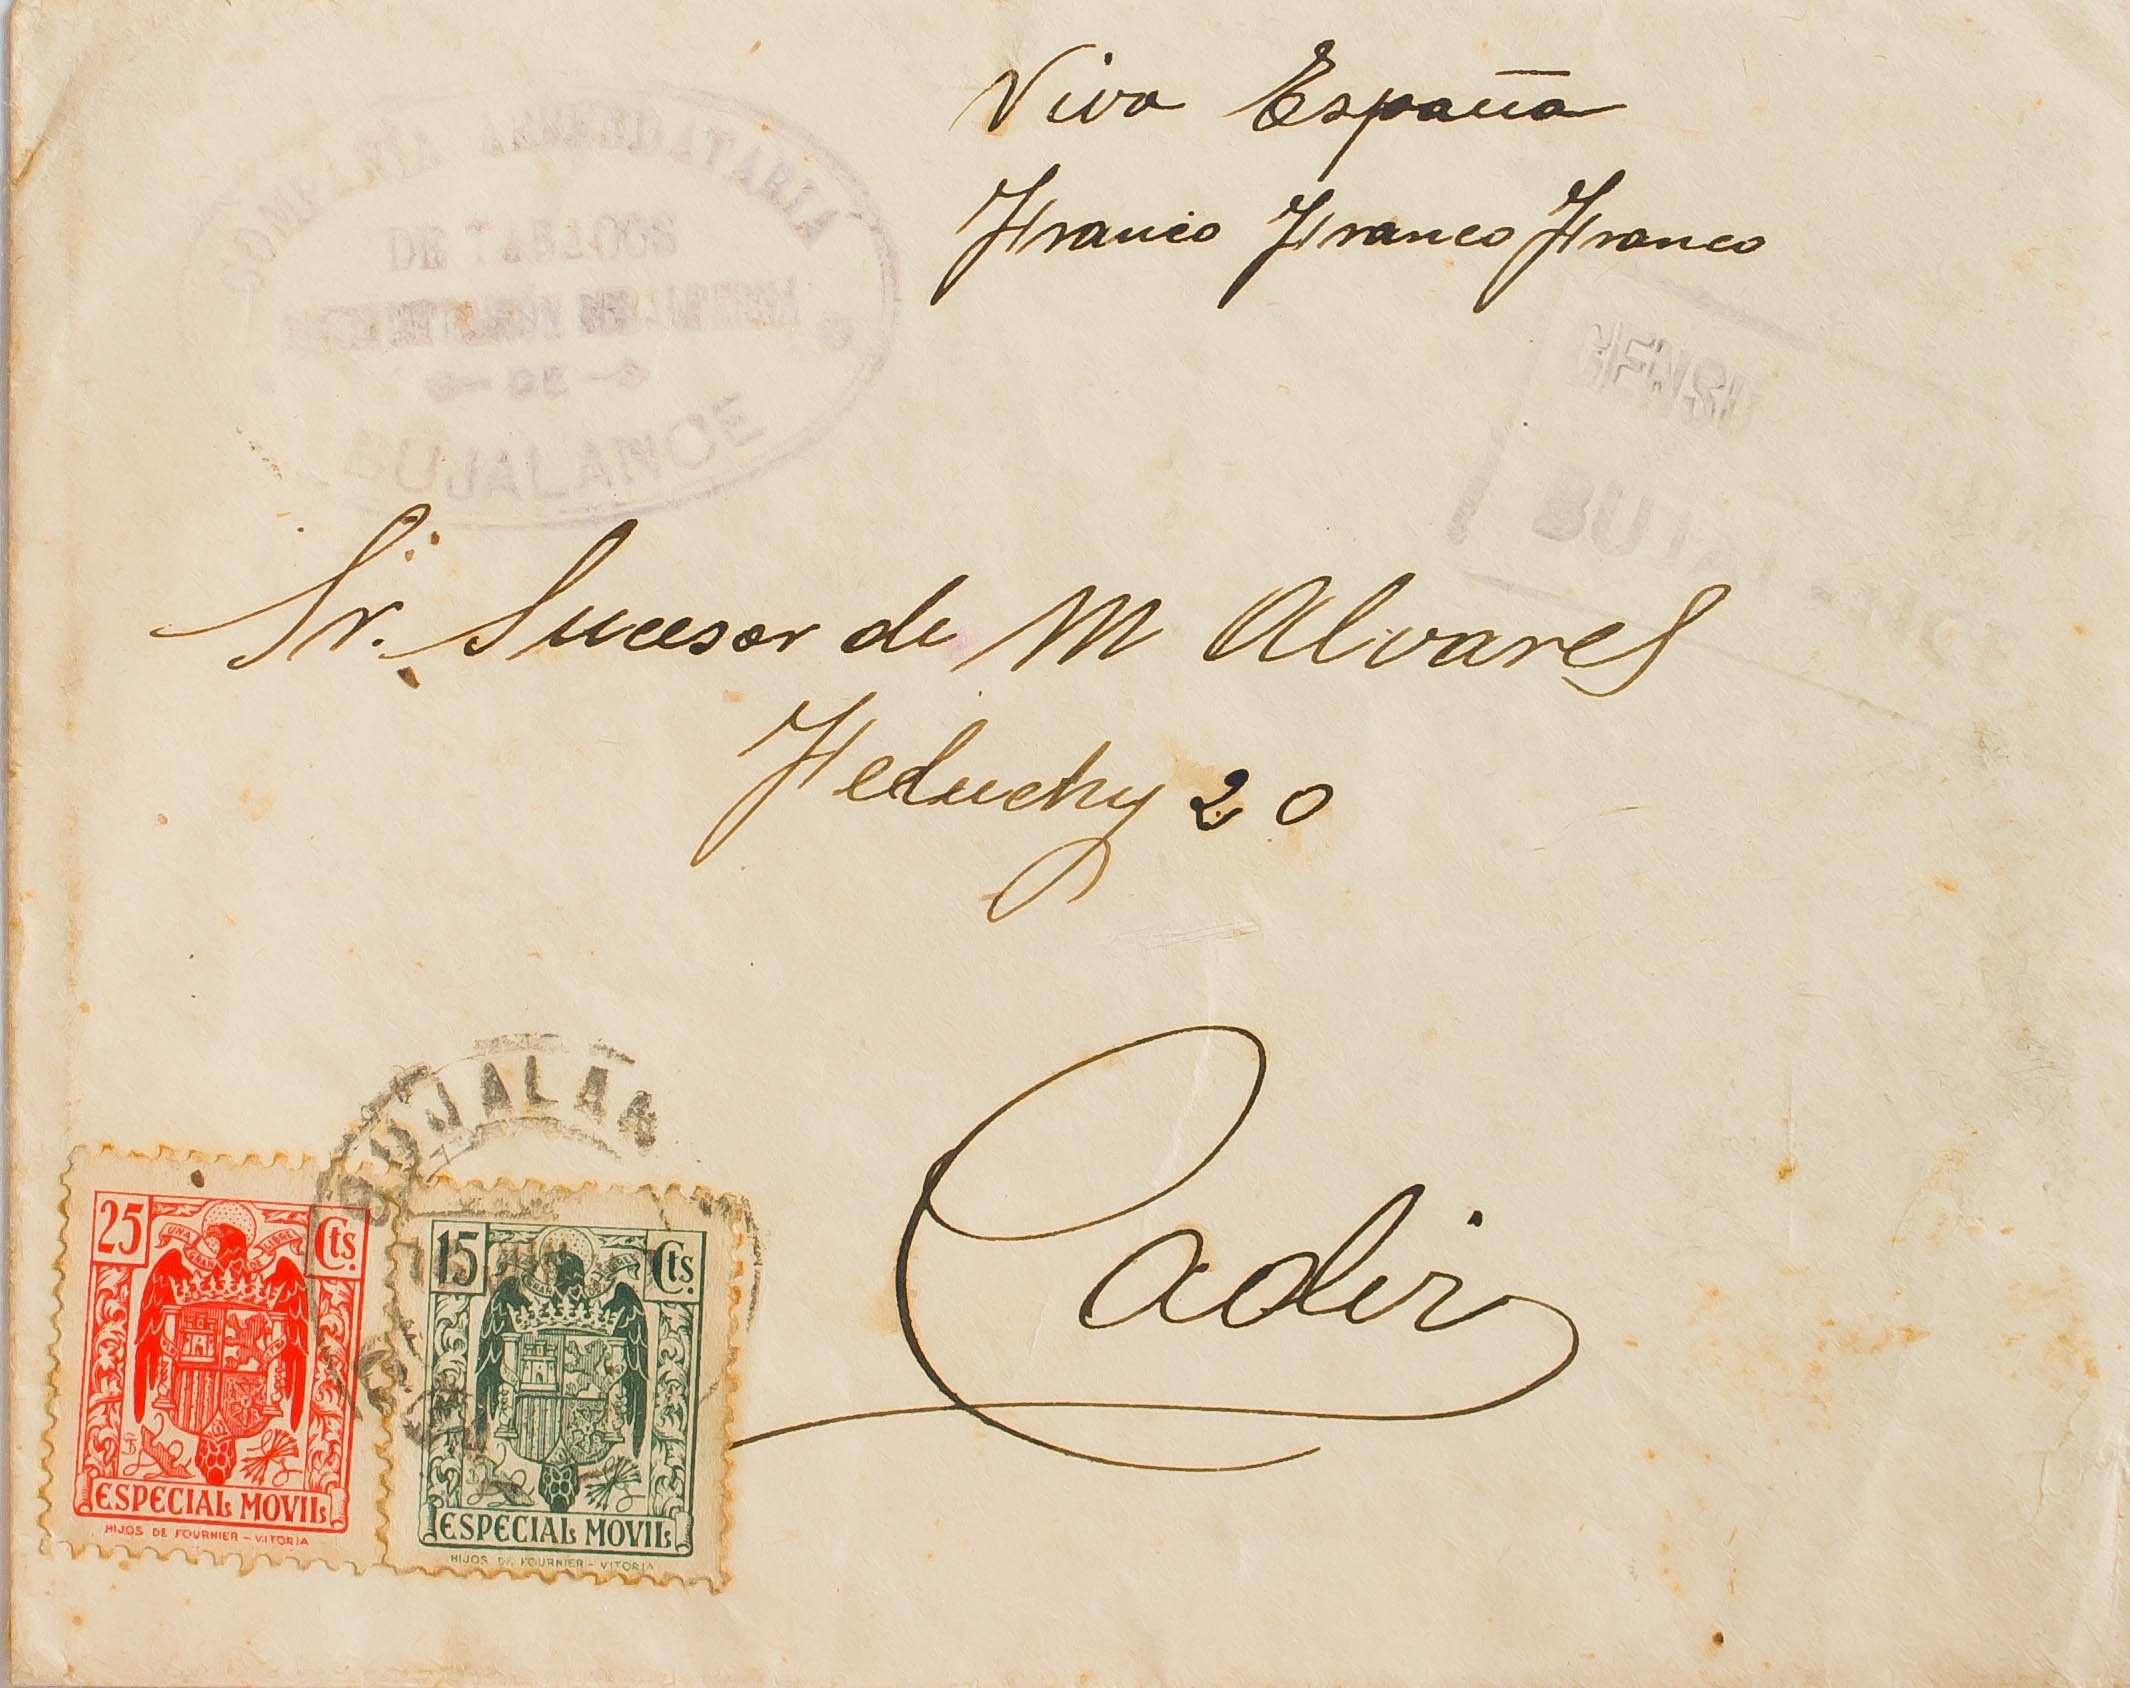 Viva España
Franco Franco Franco
COMPAÑÍA ARRENDATARIA
DE TABACOS
DE
BUJALANCE
CENSU
BUJALANCE
Sr. Sucesor de M Alvares
Feduchy 20
Cadiz
BUJALAN
25 Cts.
UNA GRANDE LIBRE
ESPECIAL MOVIL
HIJOS DE FOURNIER - VITORIA
15 Cts.
ESPECIAL MOVIL
HIJOS DE FOURNIER - VITORIA